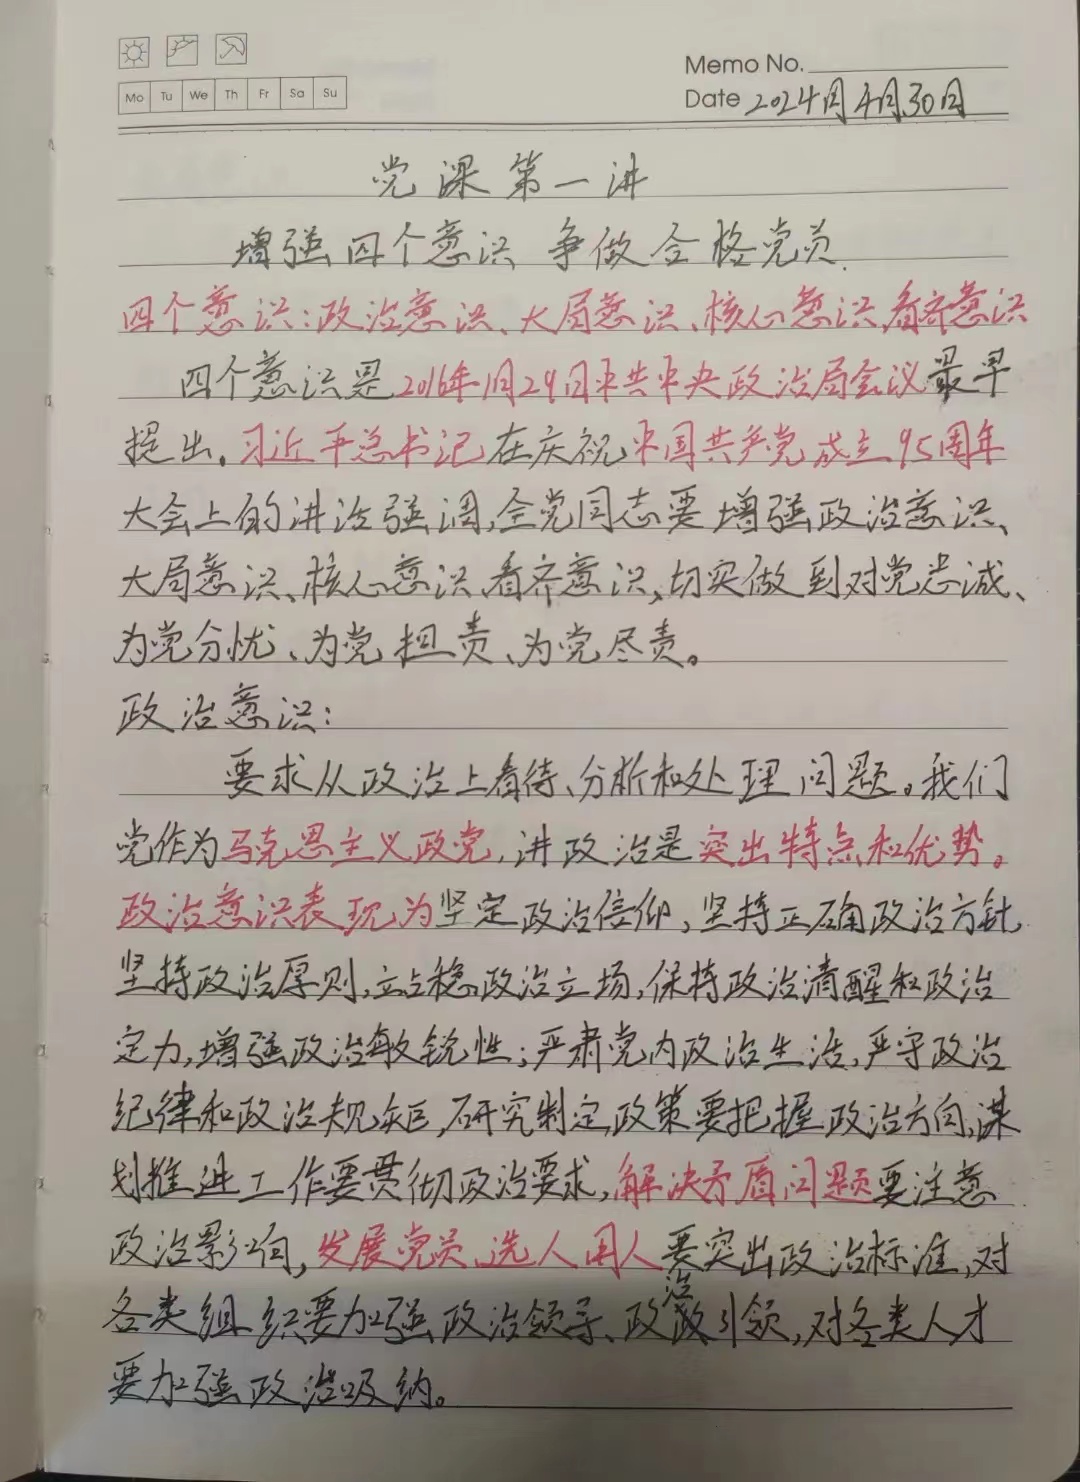 Memo No.
Mo Tu We Th Fr Sa Su
Date 2024年4月30日
党课第一讲
增强四个意识 争做合格党员.
四个意识:政治意识、大局意识、核心意识、看齐意识
四个意识是2016年1月29日中共中央政治局会议最早
提出。习近平总书记在庆祝中国共产党成立95周年
大会上的讲话强调,全党同志要增强政治意识、
大局意识、核心意识、看齐意识,切实做到对党忠诚、
为党分忧、为党担责、为党尽责。
政治意识:
要求从政治上看待、分析和处理问题。我们
党作为马克思主义政党,讲政治是突出特点和优势。
政治意识表现为坚定政治信仰,坚持正确政治方针,
坚持政治原则,站稳政治立场,保持政治清醒和政治
定力,增强政治敏锐性;严肃党内政治生活,严守政治
纪律和政治规矩,研究制定政策要把握政治方向,谋
划推进工作要贯彻政治要求,解决矛盾问题要注意
政治影响,发展党员、选人用人要突出政治标准,对
各类组织要加强政治领导、政治引领,对各类人才
要加强政治吸纳。